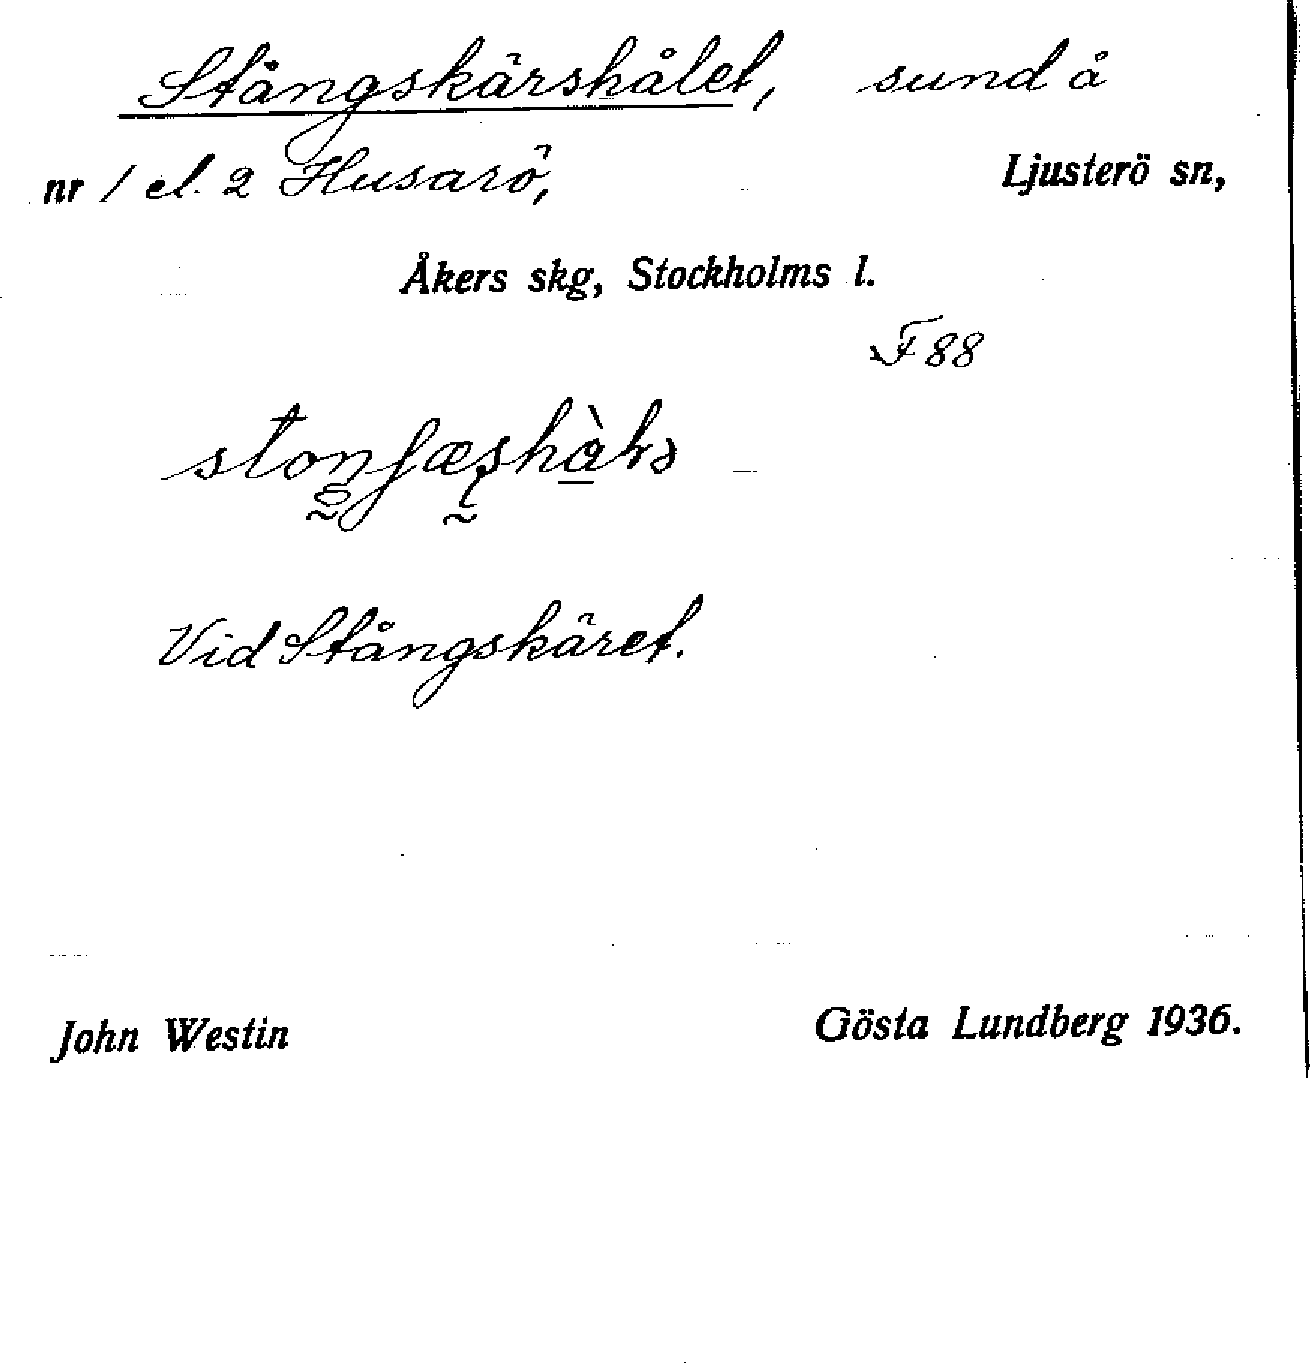 Stångskärshålet, sund å
nr 1 el. 2 Husarö, Ljusterö sn,
Åkers skg, Stockholms l.
F 88
Vid Stångskäret.
John Westin Gösta Lundberg 1936.